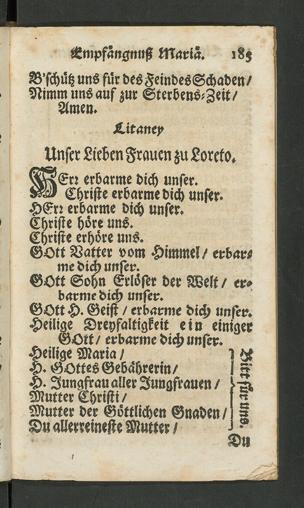 Empfängnuß Mariä. 185
B'schütz uns für des Feindes Schaden/
Nimm uns auf zur Sterbens-Zeit/
Amen.
Litaney
Unser Lieben Frauen zu Loreto.
HErr erbarme dich unser.
Christe erbarme dich unser.
HErr erbarme dich unser.
Christe höre uns.
Christe erhöre uns.
GOtt Vatter vom Himmel / erbar-
me dich unser.
GOtt Sohn Erlöser der Welt / er-
barme dich unser.
GOtt H. Geist / erbarme dich unser.
Heilige Dreyfaltigkeit ein einiger
GOtt / erbarme dich unser.
Heilige Maria /
H. GOttes Gebährerin /
H. Jungfrau aller Jungfrauen /
Mutter Christi /
Mutter der Göttlichen Gnaden /
Du allerreineste Mutter /
Bitt für uns.
Du